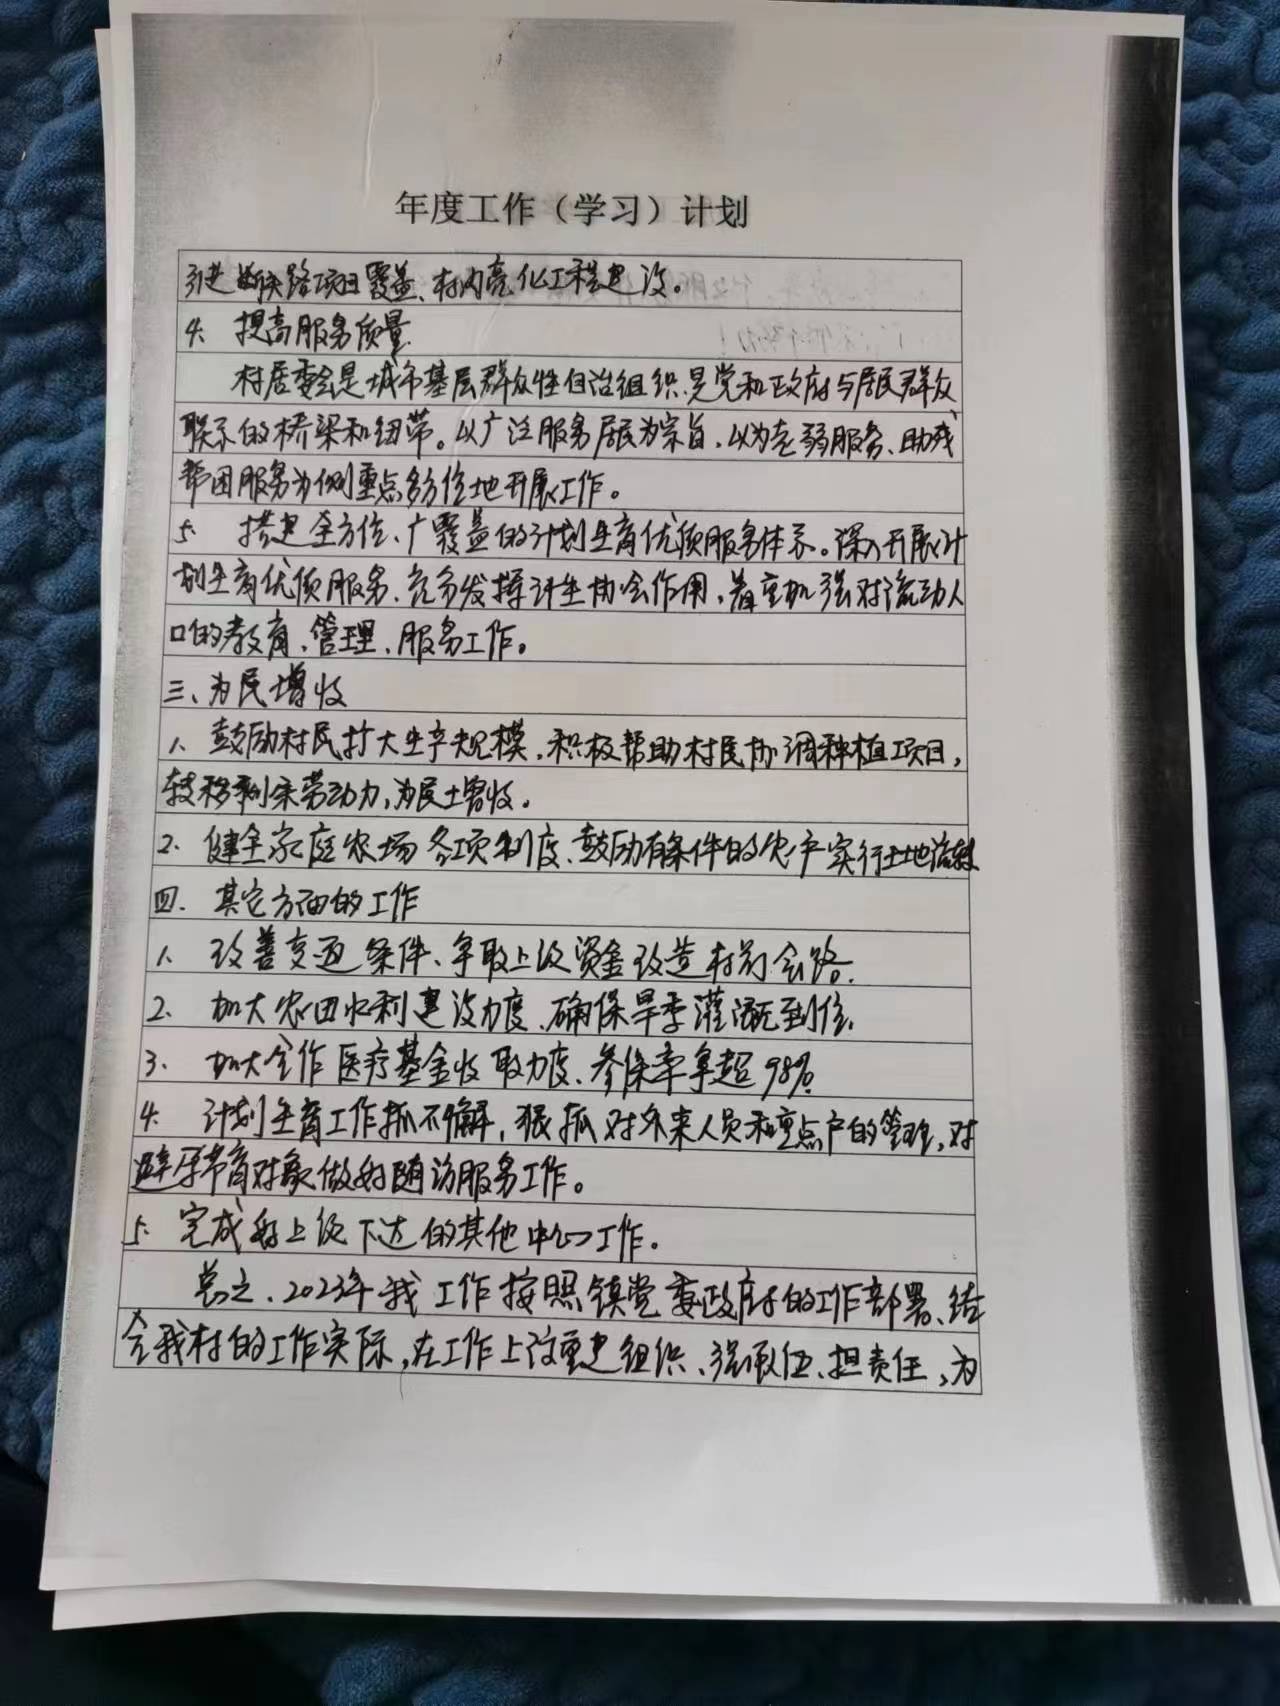 年度工作（学习）计划
引进断头路项目覆盖、村内亮化工程建设。
4. 提高服务质量
村居委会是城市基层群众性自治组织,是党和政府与居民群众
联系的桥梁和纽带。以广泛服务居民为宗旨，以为老弱服务、助残
帮困服务为侧重点多方位地开展工作。
5. 搭建全方位、广覆盖的计划生育优质服务体系。深入开展计
划生育优质服务、充分发挥计生协会作用，着重加强对流动人
口的教育、管理、服务工作。
三、为民增收
1. 鼓励村民扩大生产规模，积极帮助村民协调种植项目，
转移剩余劳动力，为民增收。
2. 健全家庭农场各项制度、鼓励有条件的农户实行土地流转
四. 其它方面的工作
1. 改善交通条件、争取上级资金改造村前公路.
2. 加大农田水利建设力度、确保旱季灌溉到位.
3. 加大合作医疗基金收取力度、参保率拿超98%.
4. 计划生育工作抓不懈，狠抓对外来人员和重点户的管理，对
避孕节育对象做好随访服务工作。
5. 完成好上级下达的其他中心工作。
总之、2023年我工作按照镇党委政府的工作部署、结
合我村的工作实际，在工作上注重建组织、强队伍、担责任，为